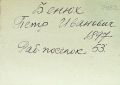 Бенюх
Петр Иванович
1897
Раб. поселок 53